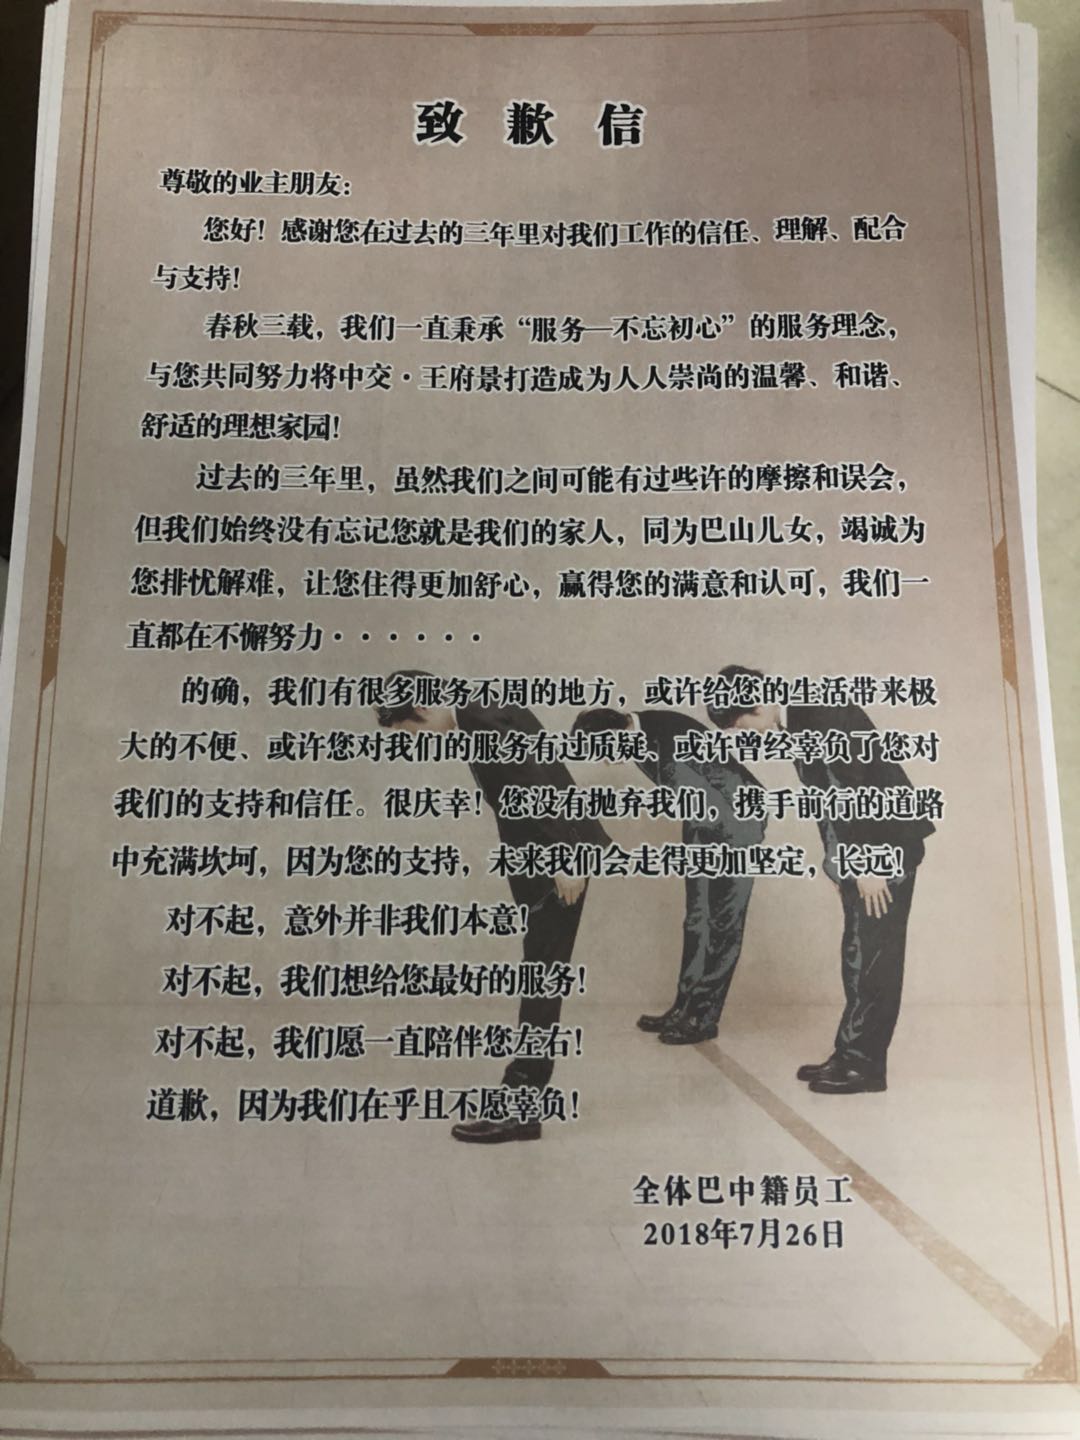 致歉信
尊敬的业主朋友：
您好！感谢您在过去的三年里对我们工作的信任、理解、配合
与支持！
春秋三载，我们一直秉承“服务—不忘初心”的服务理念，
与您共同努力将中交·王府景打造成为人人崇尚的温馨、和谐、
舒适的理想家园！
过去的三年里，虽然我们之间可能有过些许的摩擦和误会，
但我们始终没有忘记您就是我们的家人，同为巴山儿女，竭诚为
您排忧解难，让您住得更加舒心，赢得您的满意和认可，我们一
直都在不懈努力······
的确，我们有很多服务不周的地方，或许给您的生活带来极
大的不便、或许您对我们的服务有过质疑、或许曾经辜负了您对
我们的支持和信任。很庆幸！您没有抛弃我们，携手前行的道路
中充满坎坷，因为您的支持，未来我们会走得更加坚定，长远！
对不起，意外并非我们本意！
对不起，我们想给您最好的服务！
对不起，我们愿一直陪伴您左右！
道歉，因为我们在乎且不愿辜负！
全体巴中籍员工
2018年7月26日